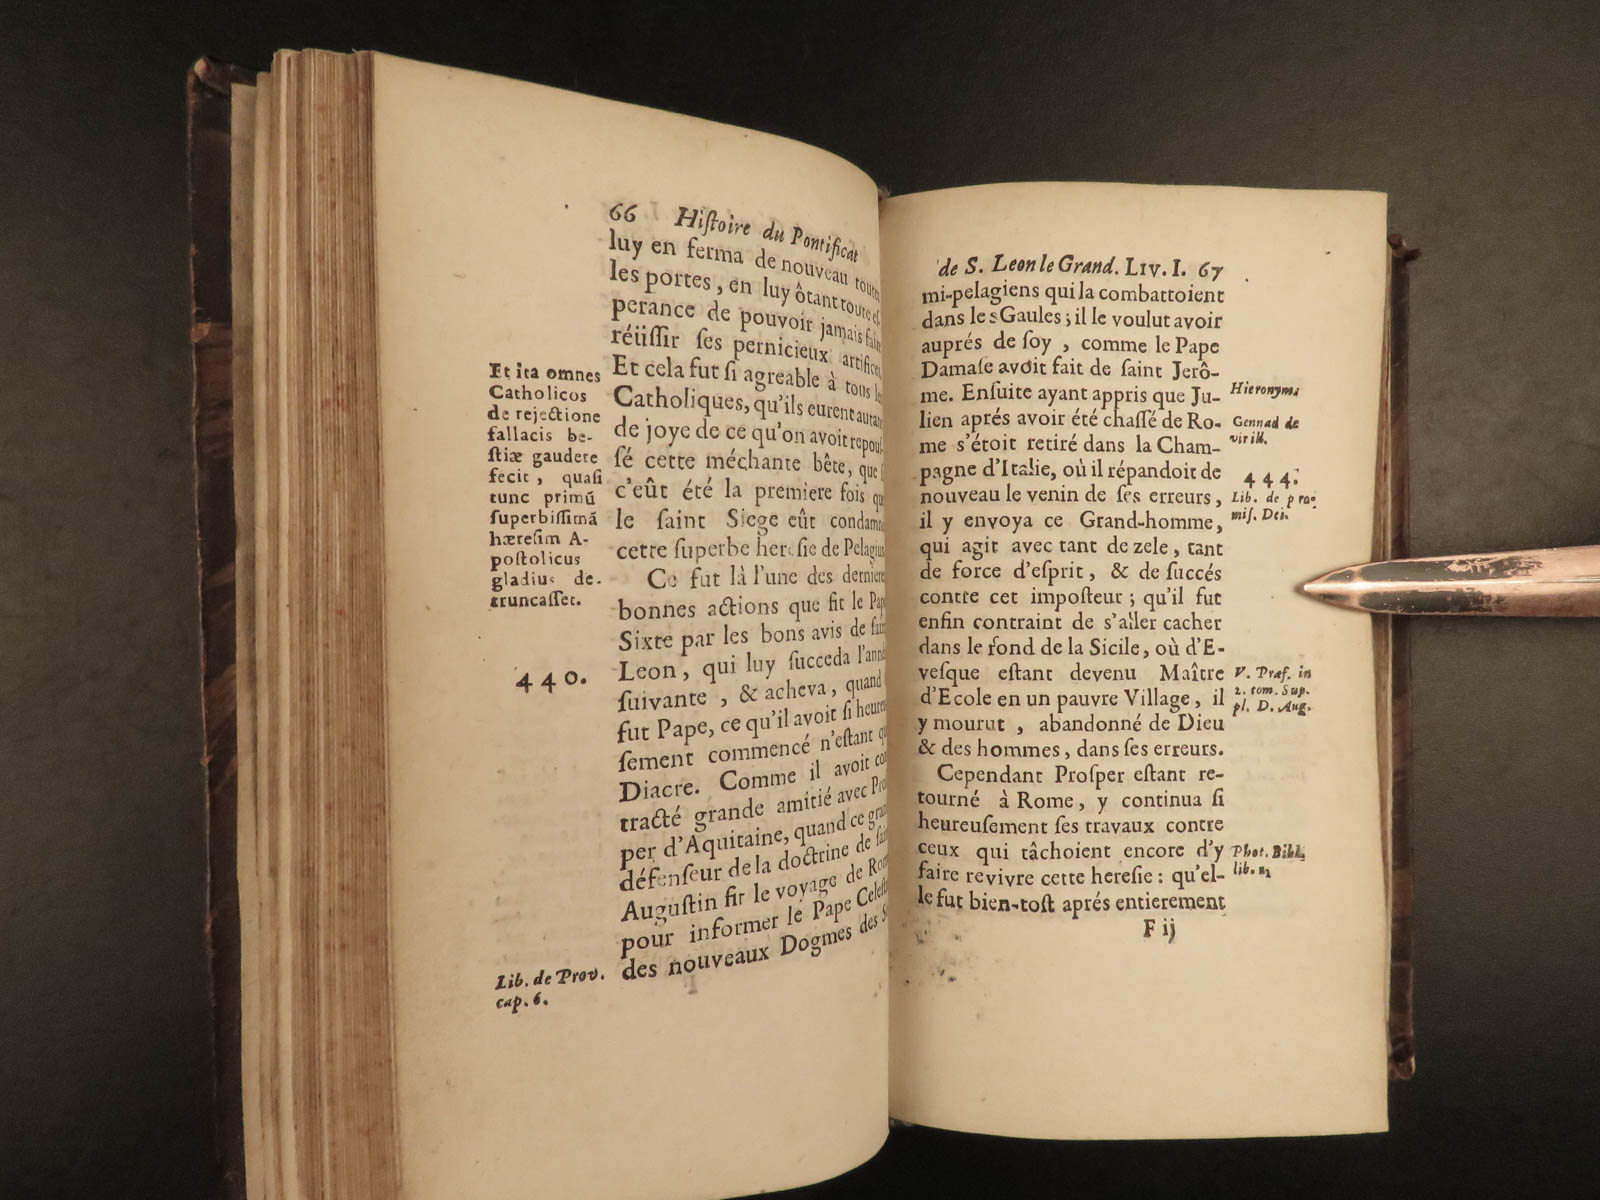 66 Hiſtoire du Pontificat
luy en ferma de nouveau toutes
les portes, en luy ôtant toute eſ-
perance de pouvoir jamais faire
réüſſir ſes pernicieux artifices
Et cela fut ſi agreable à tous les
Catholiques, qu'ils eurent autant
de joye de ce qu'on avoit repouſ-
ſé cette méchante bête, que ſi
c'eût été la premiere fois que
le ſaint Siege eût condamné
cette ſuperbe hereſie de Pelagius
Ce fut là l'une des dernieres
bonnes actions que fit le Pape
Sixte par les bons avis de ſaint
Leon, qui luy ſucceda l'année
ſuivante, & acheva, quand il
fut Pape, ce qu'il avoit ſi heureu-
ſement commencé n'eſtant que
Diacre. Comme il avoit con-
tracté grande amitié avec Proſ-
per d'Aquitaine, quand ce grand
défenſeur de la doctrine de ſaint
Auguſtin fit le voyage de Rome
pour informer le Pape Celeſtin
des nouveaux Dogmes des
Et ita omnes
Catholicos
de rejectione
fallacis be-
ſtiæ gaudere
fecit, quaſi
tunc primũ
ſuperbiſſimã
hæreſim A-
poſtolicus
gladius de-
truncaſſet.
440.
Lib. de Prov.
cap. 6.
de S. Leon le Grand. LIV. I. 67
mi-pelagiens qui la combattoient
dans les Gaules; il le voulut avoir
auprés de ſoy, comme le Pape
Damaſe avoit fait de ſaint Jerô-
me. Enſuite ayant appris que Ju-
lien aprés avoir été chaſſé de Ro-
me s'étoit retiré dans la Cham-
pagne d'Italie, où il répandoit de
nouveau le venin de ſes erreurs,
il y envoya ce Grand-homme,
qui agit avec tant de zele, tant
de force d'eſprit, & de ſuccés
contre cet impoſteur; qu'il fut
enfin contraint de s'aller cacher
dans le fond de la Sicile, où d'E-
veſque eſtant devenu Maître
d'Ecole en un pauvre Village, il
y mourut, abandonné de Dieu
& des hommes, dans ſes erreurs.
Cependant Proſper eſtant re-
tourné à Rome, y continua ſi
heureuſement ſes travaux contre
ceux qui tâchoient encore d'y
faire revivre cette hereſie: qu'el-
le fut bien-toſt aprés entierement
F ij
Hieronym.
Gennad de
vir ill.
444.
Lib. de pro-
miſ. Dei.
V. Præf. in
2. tom. Sup.
pl. D. Aug.
Phot. Bibl.